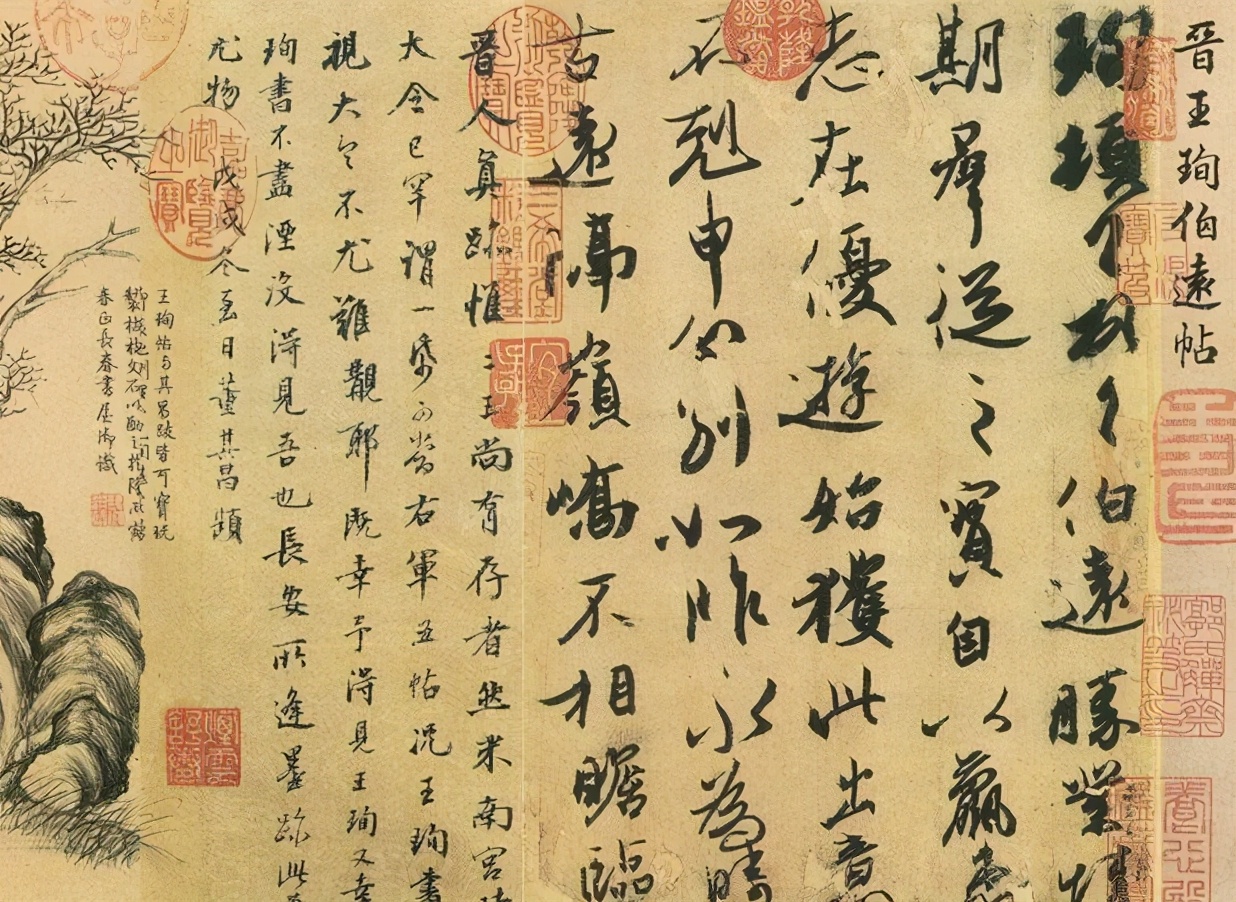 晉王珣伯遠帖
珣頓首〻〻伯遠勝業情
期羣從之寶自以羸患
志在優遊始獲此出意
不剋申分別如昨永為疇
古遠隔嶺嶠不相瞻臨
晉人真跡惟二王尚有存者然米南宮時
大令已罕謂一紙可當右軍五帖況王珣書
視大令不尤難覯耶既幸予得見王珣又幸
珣書不盡湮沒得見吾也長安所逢墨跡此為
尤物戊戌冬至日董其昌題
王珣帖與其昌跋皆可寶玩
春正長春書屋御識
乾隆鑑賞
三希堂精鑒璽
宜子孫
嘉慶御覽之寶